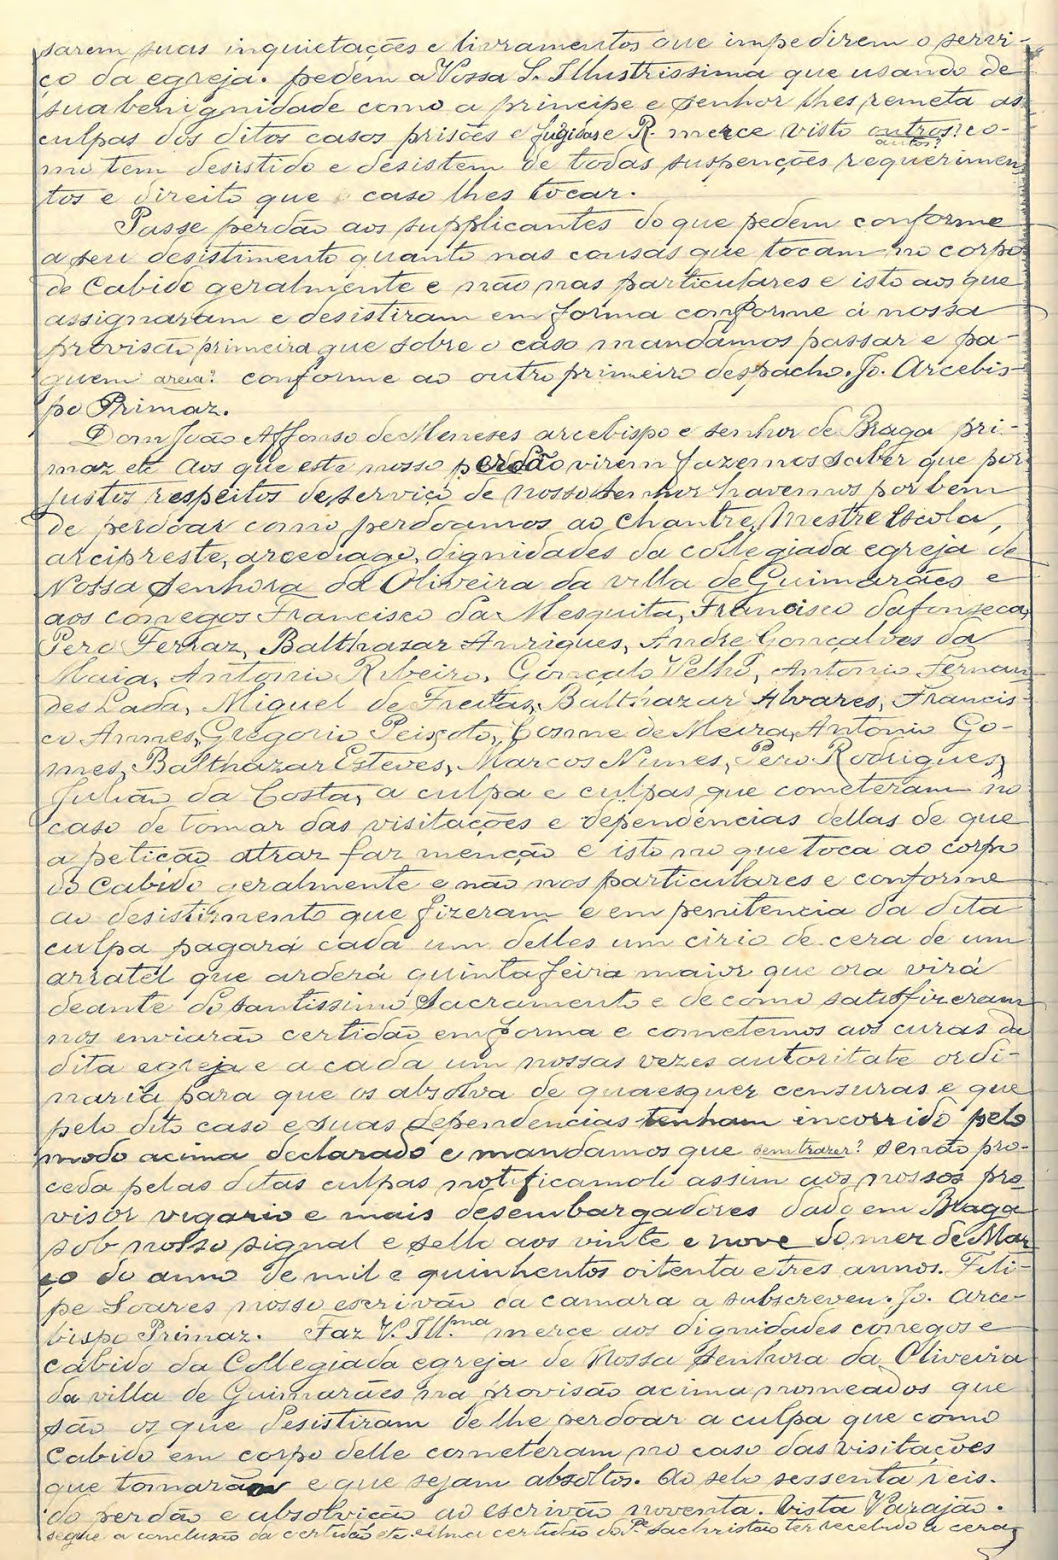 sarem suas inquietações e livramentos que impedirem o servi-
ço da egreja. pedem a Vossa S. Illustrissima que usando de
sua benignidade como a principe e senhor lhes remeta as
culpas dos ditos casos prisões e fugidas e R. merce visto outros? co-
autos?
mo tem desistido e desistem de todas suspenções requerimen
tos e direito que caso lhes tocar.
Passe perdão aos supplicantes do que pedem conforme
a seu desistimento quanto nas cousas que tocam no corpo
do Cabido geralmente e não nas particulares e isto aos que
assignaram e desistiram em forma conforme á nossa
provisão primeira que sobre o caso mandámos passar e pa-
guem areia? conforme ao outro primeiro despacho. Jo. Arcebis-
po Primaz.
Dom João Affonso de Meneses arcebispo e senhor de Braga pri-
maz etc aos que este nosso perdão virem fazemos saber que por
justos respeitos de serviço de nosso senhor havemos por bem
de perdoar como perdoamos ao chantre, Mestre Escola,
arcipreste, arcediago, dignidades da collegiada egreja de
Nossa Senhora da Oliveira da villa de Guimarães e
aos conegos Francisco da Mesquita, Francisco dafonseca,
Pero Ferraz, Balthazar Anriques, Andre Gonçalves da
Maia, Antonio Ribeiro, Gonçalo Velho, Antonio Fernan
des Lada, Miguel de Freitas, Balthazar Alvares, Francis-
co Annes, Gregorio Peixoto, Cosme de Meira, Antonio Go-
mes, Balthazar Esteves, Marcos Nunes, Pero Rodrigues,
Julião da Costa, a culpa e culpas que cometeram no
caso de tomar das visitações e dependencias dellas de que
a petição atraz faz menção e isto no que toca ao corpo
do Cabido geralmente e não nos particulares e conforme
ao desistimento que fizeram e em penitencia da dita
culpa pagará cada um delles um cirio de cera de um
arratel que arderá quinta feira maior que ora virá
deante do santissimo Sacramento e de como satisfizeram
nos enviarão certidão em forma e cometemos aos curas da
dita egreja e a cada um nossas vezes autoritate ordi-
naria para que os absolva de quaesquer censuras e que
pelo dito caso e suas dependencias tenham incorrido pelo
modo acima declarado e mandamos que sem trazer? se não pro-
ceda pelas ditas culpas notificamolo assim aos nossos pro
visor vigario e mais desembargadores dado em Braga
sob nosso signal e sello aos vinte e nove do mez de Mar
ço do anno de mil e quinhentos oitenta e tres annos. Feli-
pe Soares nosso escrivão da camara a subscreveu. Jo. Arce-
bispo Primaz. Faz V. Ill.ma merce aos dignidades conegos e
cabido da Collegiada egreja de Nossa Senhora da Oliveira
da villa de Guimarães na provisão acima nomeados que
são os que desistiram de lhe perdoar a culpa que como
Cabido em corpo delle cometeram no caso das visitações
que tomarão e que sejam absoltos. Ao selo sessenta reis.
do perdão e absolvição ao escrivão noventa. Vista Varajão.
segue a conclusão da certidão etc e uma certidão do Pe sachristão ter recebido a cera